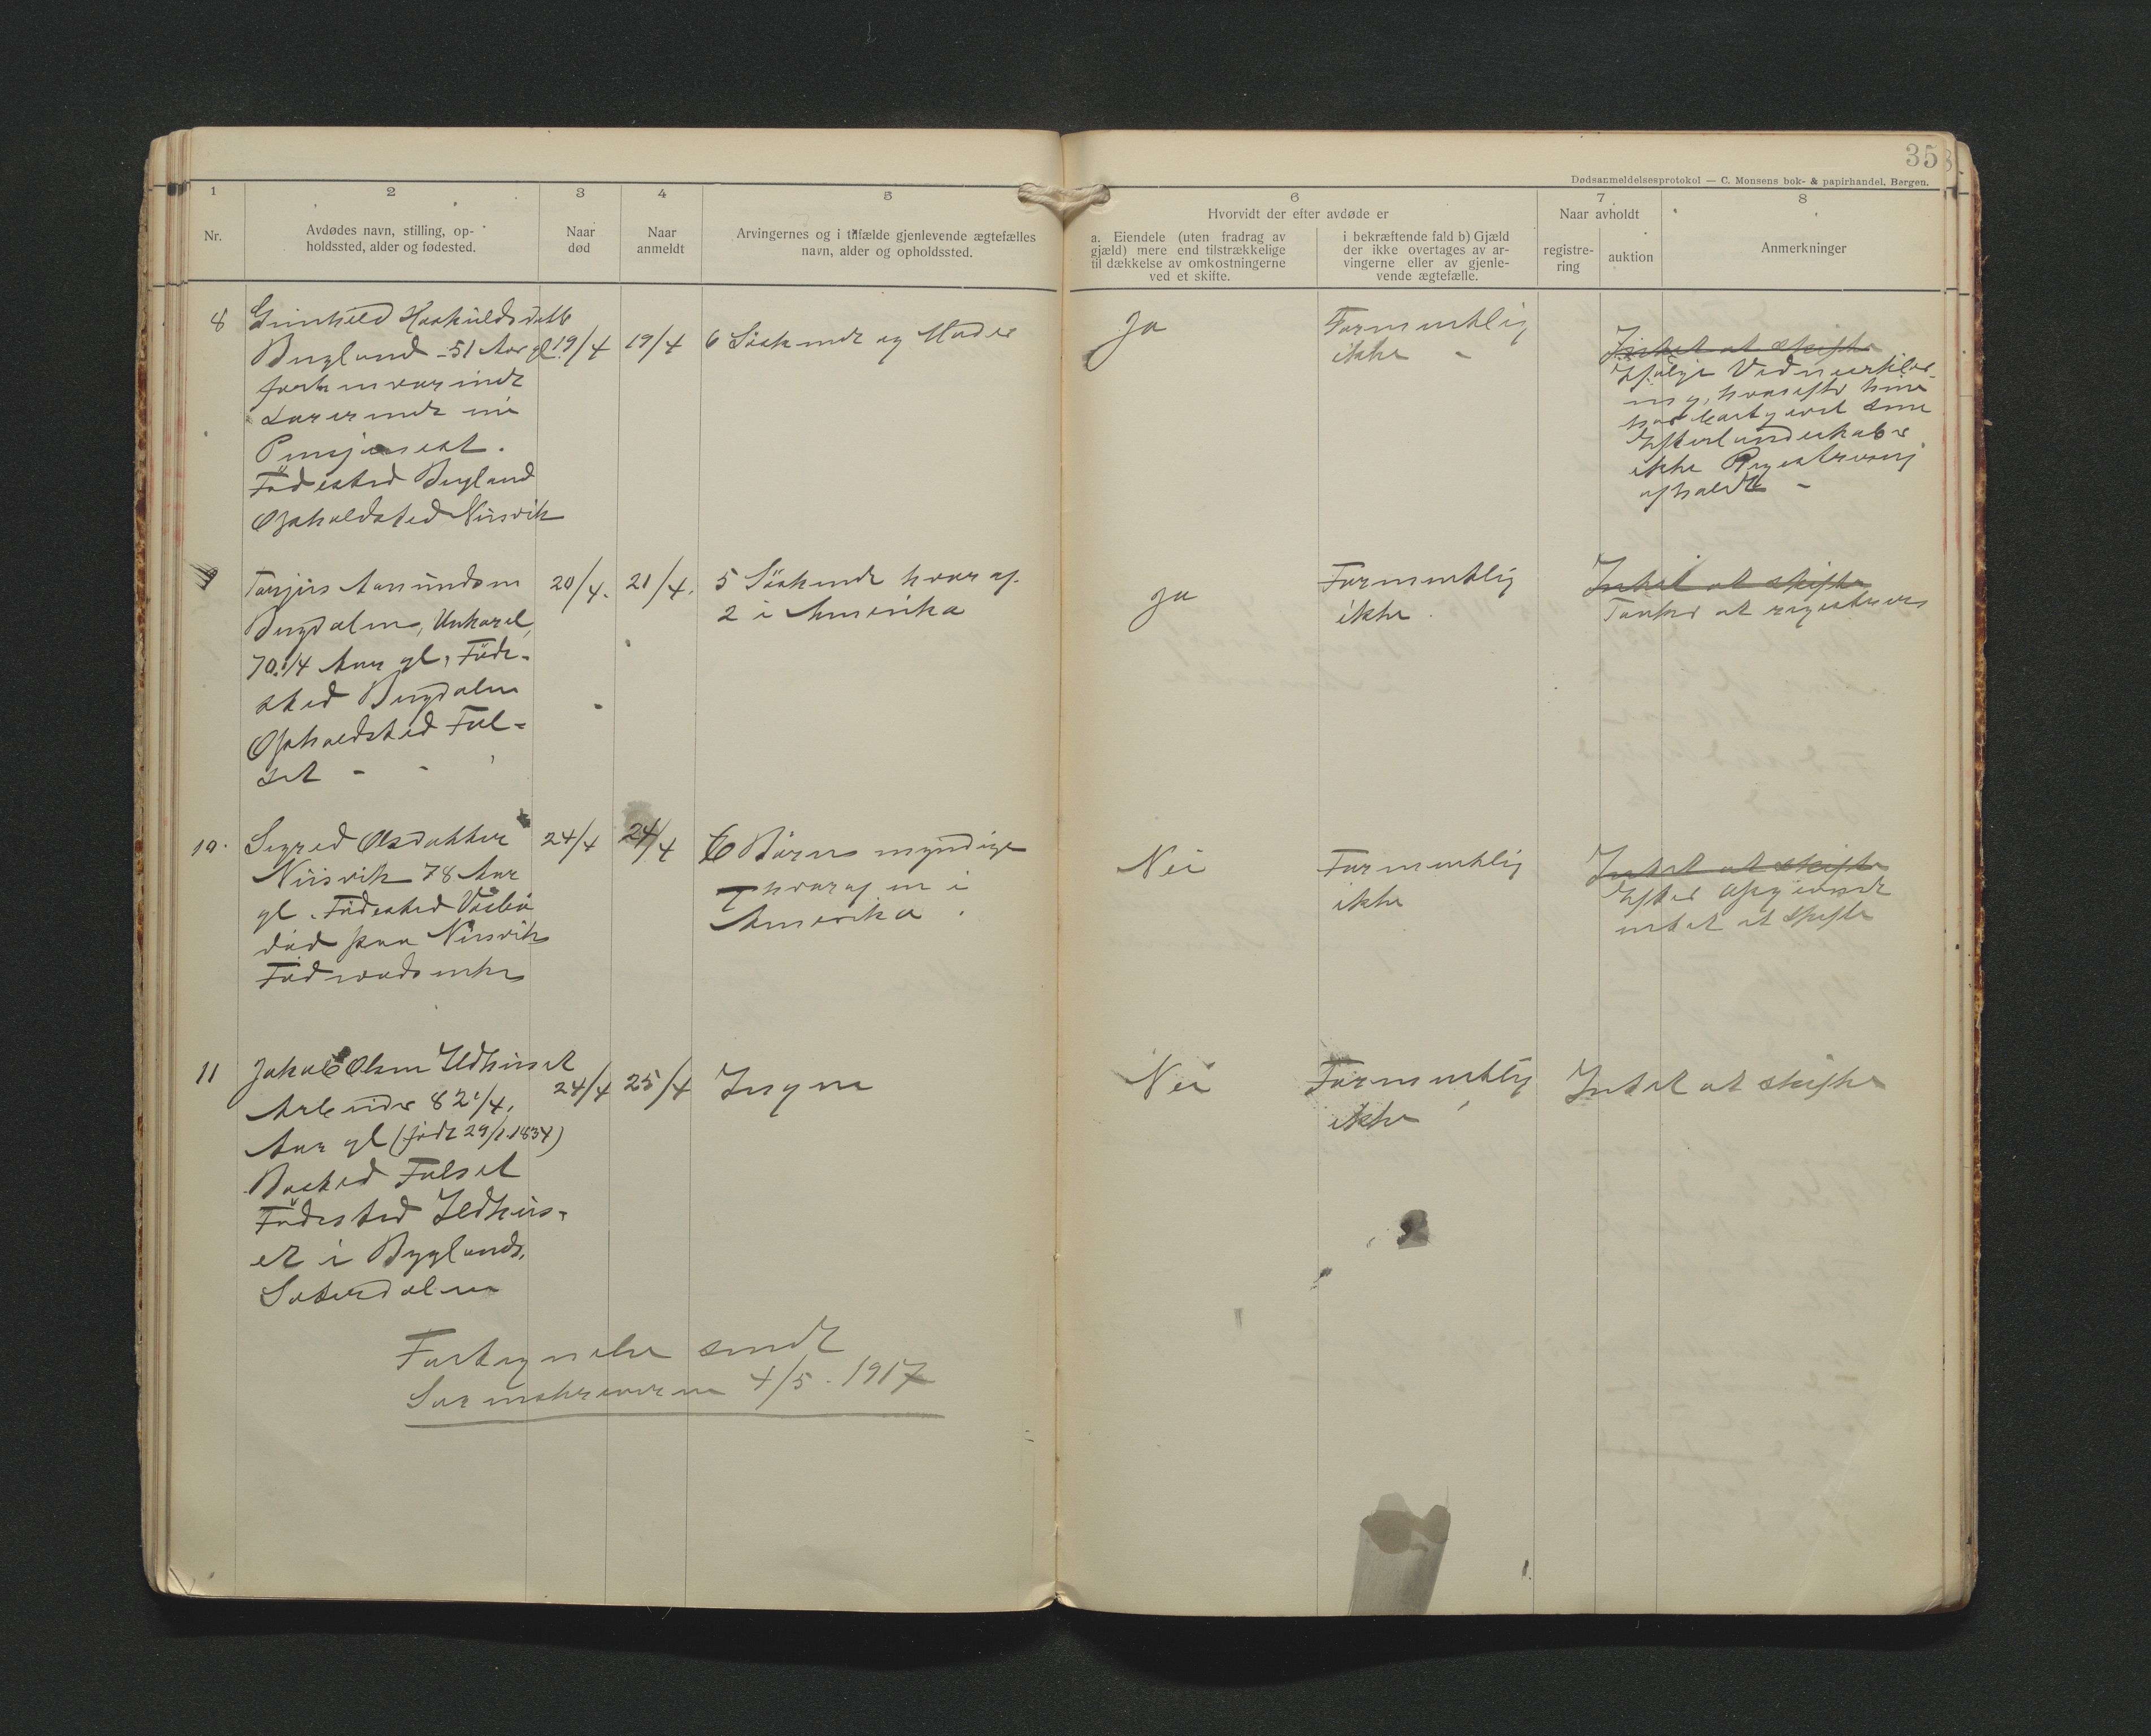 35
Dødsanmeldelsesprotokol — C. Monsens bok- & papirhandel, Bergen.
1
2
3
4
5
6
7
8
Nr.
Avdødes navn, stilling, op-
holdssted, alder og fødested.
Naar
død
Naar
anmeldt
Arvingernes og i tilfælde gjenlevende ægtefælles
navn, alder og opholdssted.
Hvorvidt der efter avdøde er
a. Eiendele (uten fradrag av
gjæld) mere end tilstrækkelige
til dækkelse av omkostningerne
ved et skifte.
i bekræftende fald b) Gjæld
der ikke overtages av ar-
vingerne eller av gjenle-
vende ægtefælle.
Naar avholdt
registre-
ring
auktion
Anmerkninger
8
Gunhild
Bygland - 51 Aar gl.
Pensjonest.
Födested Bygland
Opholdsted Niisvik
19/4
19/4
6 Söskende og Moder
Ja
Formentlig
ikke -
Intet at skifte
ikke Registrering
afholdt -
9
Tarjus Aanundsen
Bygdalen, Unkarel,
70.1/4 Aar gl, Föde-
sted Bygdalen
Opholdsted Fal-
set - -
20/4.
21/4.
5 Söskende hvor af
2 i Amerika
Ja
Formentlig
ikke
Intet at skifte
at registrere
10.
Sigred Olsdatter
Niisvik 78 Aar
gl. Födested
död paa Niisvik
Föderaadsenke
24/4
24/4
6 Börn myndige
hvoraf en i
Amerika.
Nei
Formentlig
ikke
Intet at skifte
Efter Opgivende
intet at skifte
11
Jakob Olsen Ildhuset
Arbeider 82 1/4,
Aar gl (födt 29/1.1834)
Bosted Falset
Födested Ildhus-
et i Byglands,
Sæterdalen
24/4
25/4
Ingen
Nei
Formentlig
ikke
Intet at skifte
Fortegnelse sendt
Sorenskriveren 4/5. 1917